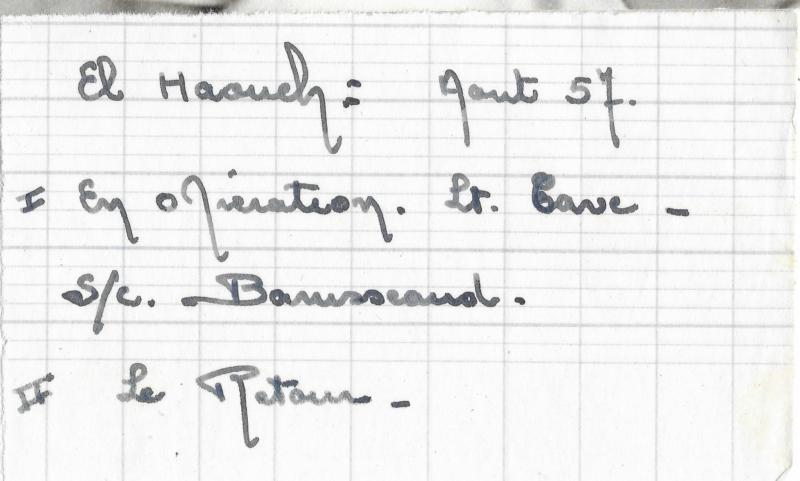 El Haouch : Aout 57.
I En opération. Lt. Cave -
S/c.
II Le Retour -